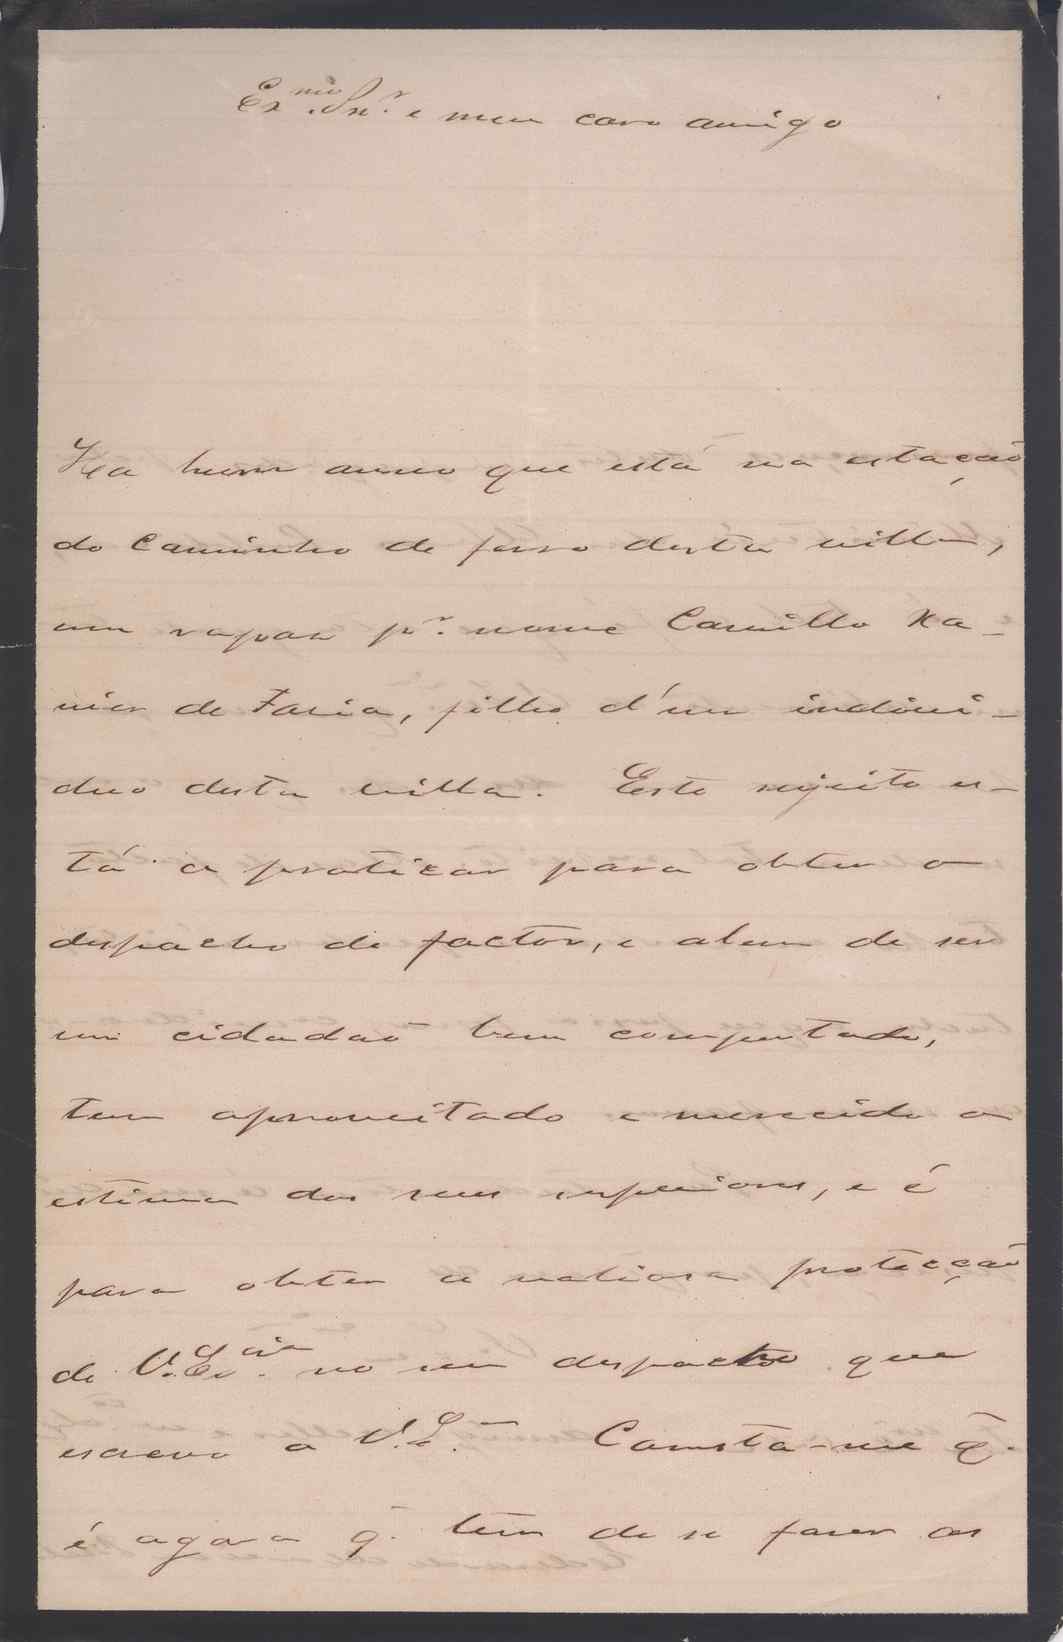 Ex.mo Snr. e meu caro amigo
Ha hum anno que está na estação
do Caminho de ferro desta villa,
um rapaz pr. nome Camillo Xa-
vier de Faria, filho d'um indivi-
duo desta villa. Este sujeito es-
tá a praticar para obter o
despacho de factor, e alem de ser
um cidadaõ bem comportado,
tem aproveitado e merecido a
estima dos seus superiores, e é
para obter a valiosa protecção
de V. Ex.cia no seu despacho que
escrevo a V. E. Consta-me q̃.
é agora q̃. tem de se fazer os